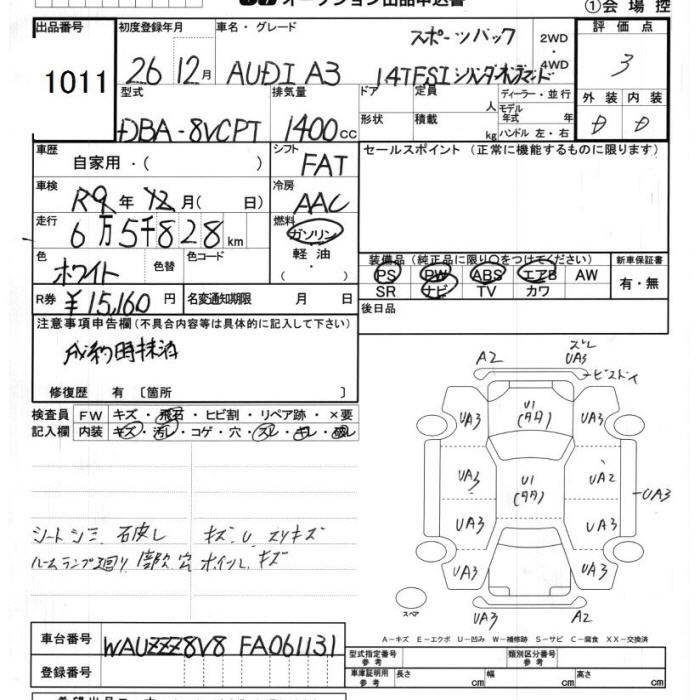 オークション出品申込書
①会場控
出品番号
1011
初度登録年月
26 12月
車名・グレード
AUDI A3
スポーツバック
14TFSI シリンダーオンデマンド
2WD・4WD
評価点
3
外装 内装
D D
型式
DBA-8VCPT
排気量
1400cc
ドア
形状
定員 人
積載 kg
ディーラー・並行
モデル年式 年
ハンドル 左・右
車歴
自家用・( )
シフト
FAT
セールスポイント (正常に機能するものに限ります)
車検
R9年12月( 日)
冷房
AAC
走行
6万5千828km
燃料
ガソリン
軽油
( ・ )
色
ホワイト
色替
色コード
装備品 (純正品に限り○をつけてください)
PS PW ABS エアB AW
SR ナビ TV カワ
新車保証書
有・無
R券 ¥15,160円
名変通知期限 月 日
後日品
注意事項申告欄(不具合内容等は具体的に記入して下さい)
成約時抹消
修復歴 有 〔箇所 〕
検査員記入欄
FW キズ・飛石・ヒビ割・リペア跡・×要
内装 キズ・汚し・コゲ・穴・スレ・キレ・破し
シートシミ 石皮し キズ、U スリキズ
ルームランプ廻り 部欠 穴 ホイールキズ
A2
ズレ
UA3
ビスドイ
UA3
U1
(タタ)
UA3
UA3
U1
(タタ)
UA2
UA3
UA3
UA3
UA3
UA3
スペア
UA3
A2
A-キズ E-エクボ U-凹み W-補修跡 S-サビ C-腐食 XX-交換済
車台番号
WAUZZZ8V8FA061131
登録番号
型式指定番号 参考
類別区分番号 参考
車庫証明用 参考
長さ cm
幅 cm
高さ cm